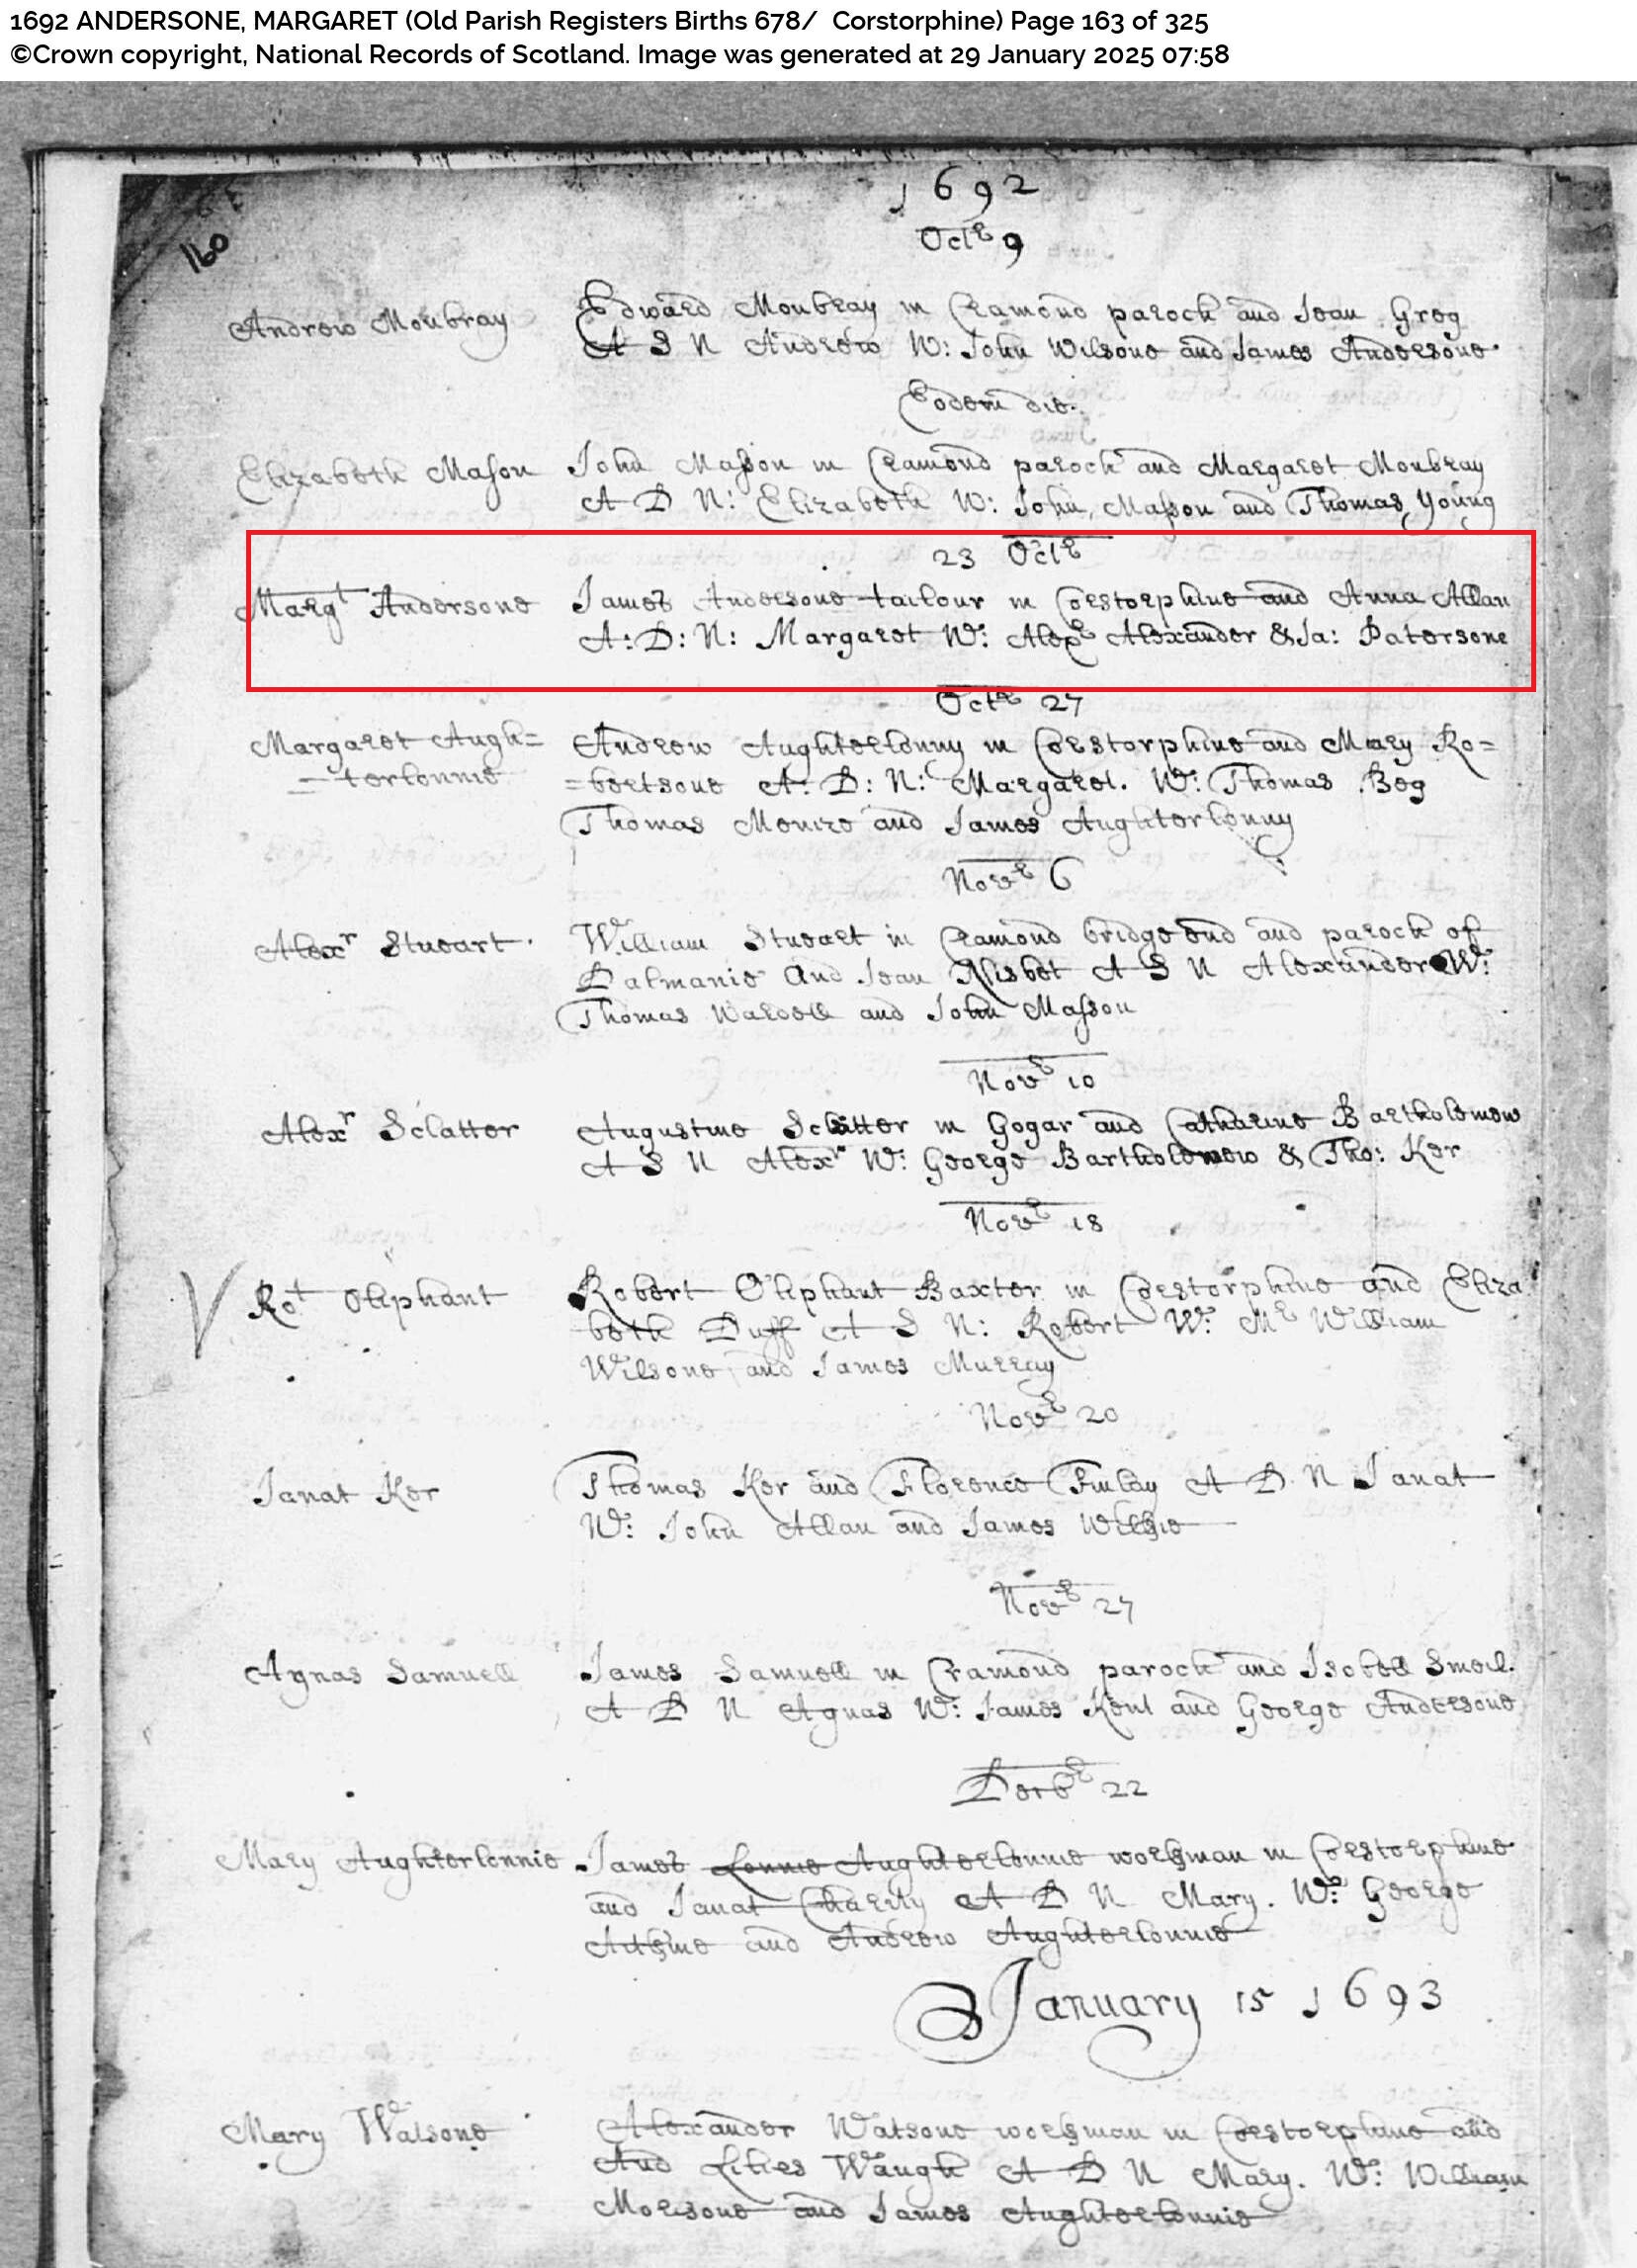 1692 ANDERSONE, MARGARET (Old Parish Registers Births 678/ Corstorphine) Page 163 of 325
©Crown copyright, National Records of Scotland. Image was generated at 29 January 2025 07:58
160
1692
Octr 9
Andrew Moubray
Edward Moubray in Cramond paroch and Jean Greg
A S N Andrew W: John Wilsone and James Andersone
Eodem die.
Elizabeth Mason
John Masson in Cramond paroch and Margaret Moubray
A D N: Elizabeth W: John Masson and Thomas Young
23 Octr
Margt Andersone
James Andersone tailour in Corstorphine and Anna Allan
A: D: N: Margaret W: Alexr Alexander & Ja: Patersone
Octr 27
Margaret Augh=
=terlonnie
Andrew Aughterlonny in Corstorphine and Mary Ro=
=bertsone A: D: N: Margaret. W: Thomas Beg
Thomas Moniro and James Aughterlonny
Novr 6
Alexr Stuart
William Stuart in Cramond bridge end and paroch of
Dalmanie and Jean Nisbet A S N Alexander W:
Thomas Wardell and John Masson
Novr 10
Alexr Sclatter
Augustine Sclatter in Gogar and Catharine Bartholomew
A S N Alexr W: George Bartholomew & Tho: Ker
Novr 18
Rot Oliphant
Robert Oliphant Baxter in Corstorphine and Eliza
beth Duff A S N: Robert W: Mr William
Wilsone and James Murray
Novr 20
Janat Ker
Thomas Ker and Florence Finlay A D N Janat
W: John Allan and James Wilkie
Novr 27
Agnas Samuell
James Samuell in Cramond paroch and Isobell Smeil.
A D N Agnas W: James Kent and George Andersone
Decbr 22
Mary Aughterlonnie
James Lonnie Aughterlonnie workman in Corstorphine
and Janat Charity A D N Mary. W: George
Aitkine and Andrew Aughterlonnie
January 15 1693
Mary Watsone
Alexander Watsone workman in Corstorphine and
And Lilies Waugh A D N Mary. W: William
Morisone and James Aughterlonnie